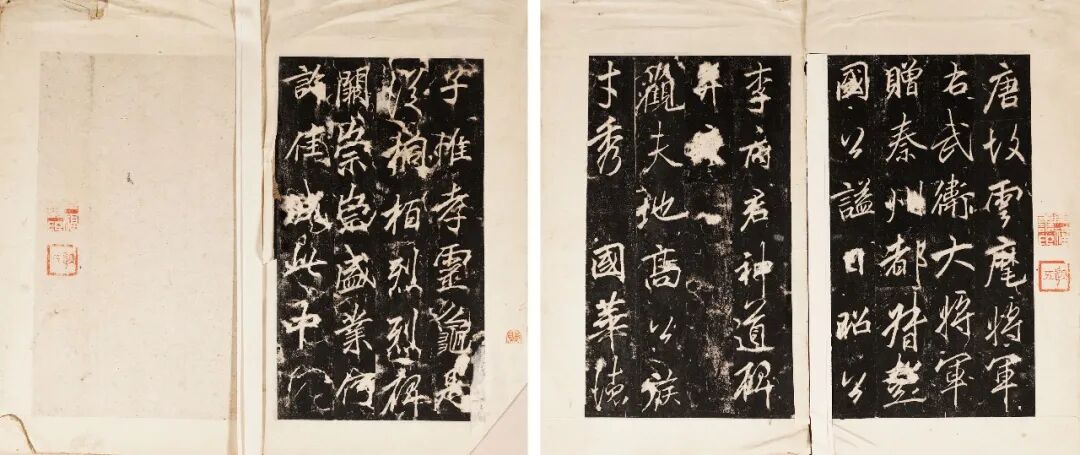 唐故雲麾將軍
右武衛大將軍
贈秦州都督彭
國公謚曰昭公
李府君神道碑
并
觀夫地高公族
才秀國華德
子惟孝靈龜是
從桐柏烈烈碑
闕崇崇盛業何
許佳城此中